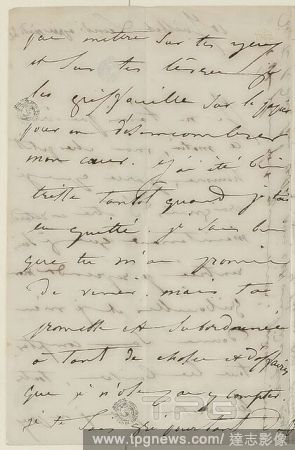 pas mettre sur tes yeux
et sur tes lèvres je
les griffouille sur le papier
pour en désencombrer
mon cœur. j'ai été si
triste tantôt quand je t'ai
quitté je sais bien
que tu m'as promis
de venir mais ta
promesse est subordonnée
à tant de choses et d'affaires
que je n'ose pas y compter.
je te pourtant
TPG
www.tpgnews.com / 達志影像